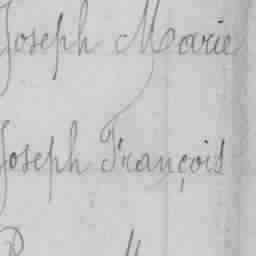 Joseph Marie
Joseph François